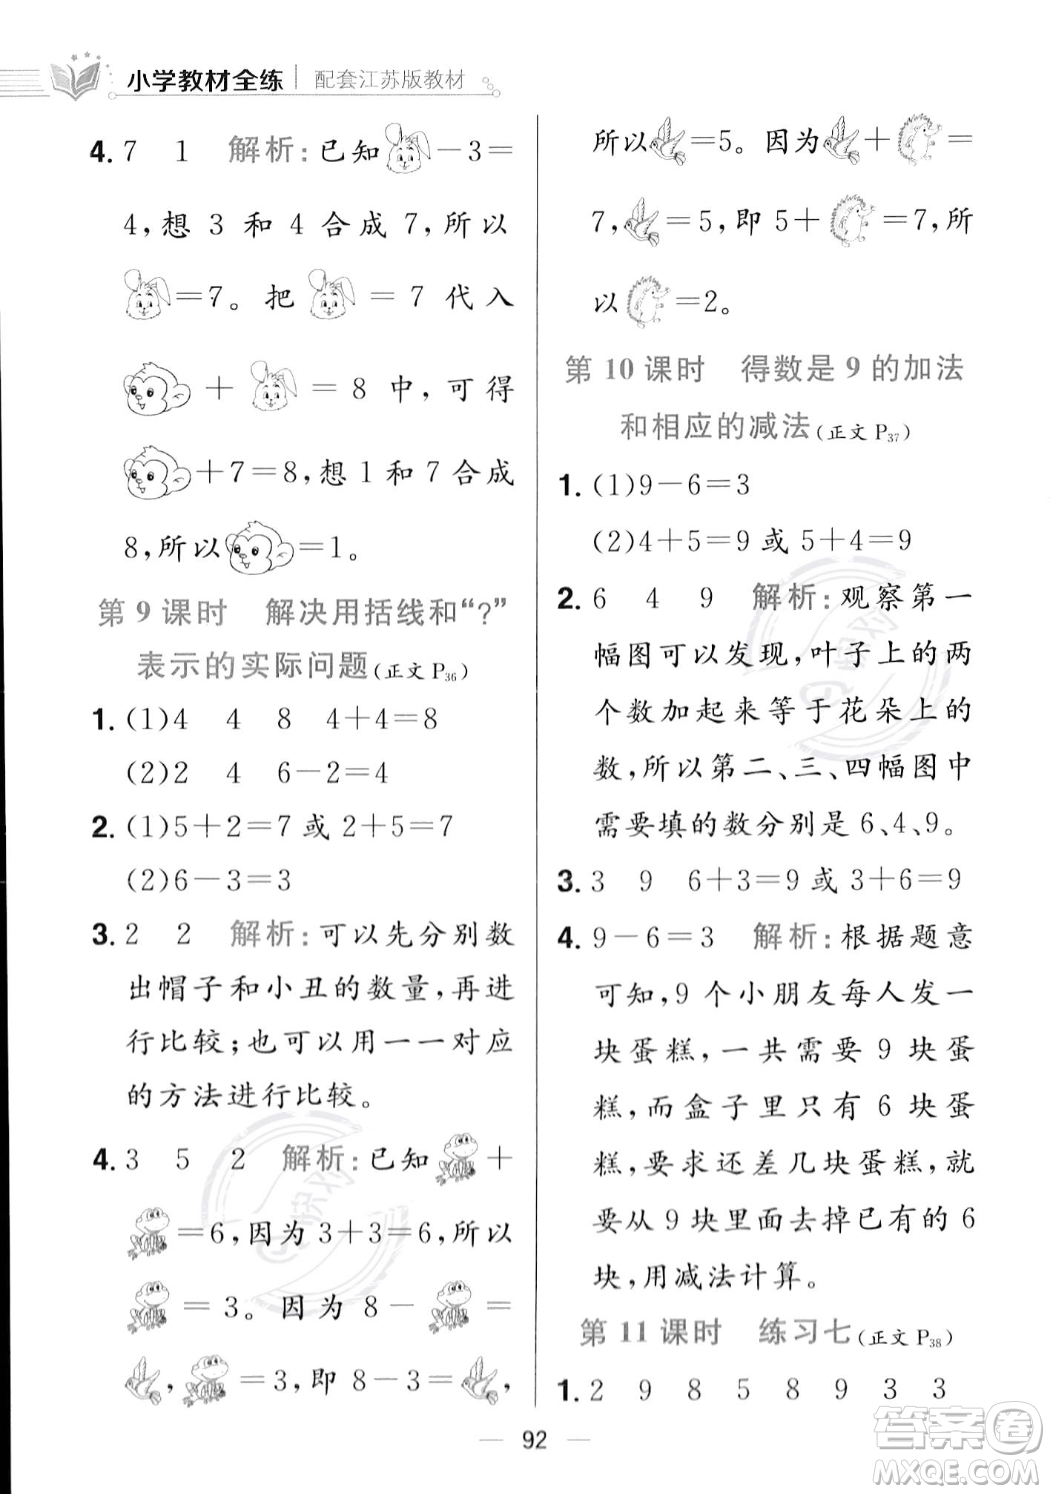 小学教材全练 配套江苏版教材
4. 7 1 解析:已知 －3＝
4,想 3 和 4 合成 7,所以
＝7。把 ＝7 代入
＋ ＝8 中,可得
＋7＝8,想 1 和 7 合成
8,所以 ＝1。
第 9 课时 解决用括线和“?”
表示的实际问题(正文 P36)
1. (1)4 4 8 4＋4＝8
(2)2 4 6－2＝4
2. (1)5＋2＝7 或 2＋5＝7
(2)6－3＝3
3. 2 2 解析:可以先分别数
出帽子和小丑的数量,再进
行比较;也可以用一一对应
的方法进行比较。
4. 3 5 2 解析:已知 ＋
＝6,因为 3＋3＝6,所以
＝3。因为 8－ ＝
, ＝3,即 8－3＝ ,
所以 ＝5。因为 ＋ ＝
7, ＝5,即 5＋ ＝7,所
以 ＝2。
第 10 课时 得数是 9 的加法
和相应的减法(正文 P37)
1. (1)9－6＝3
(2)4＋5＝9 或 5＋4＝9
2. 6 4 9 解析:观察第一
幅图可以发现,叶子上的两
个数加起来等于花朵上的
数,所以第二、三、四幅图中
需要填的数分别是 6、4、9。
3. 3 9 6＋3＝9 或 3＋6＝9
4. 9－6＝3 解析:根据题意
可知,9 个小朋友每人发一
块蛋糕,一共需要 9 块蛋
糕,而盒子里只有 6 块蛋
糕,要求还差几块蛋糕,就
要从 9 块里面去掉已有的 6
块,用减法计算。
第 11 课时 练习七(正文 P38)
1. 2 9 8 5 8 9 3 3
92
答案圈
MXQE.COM